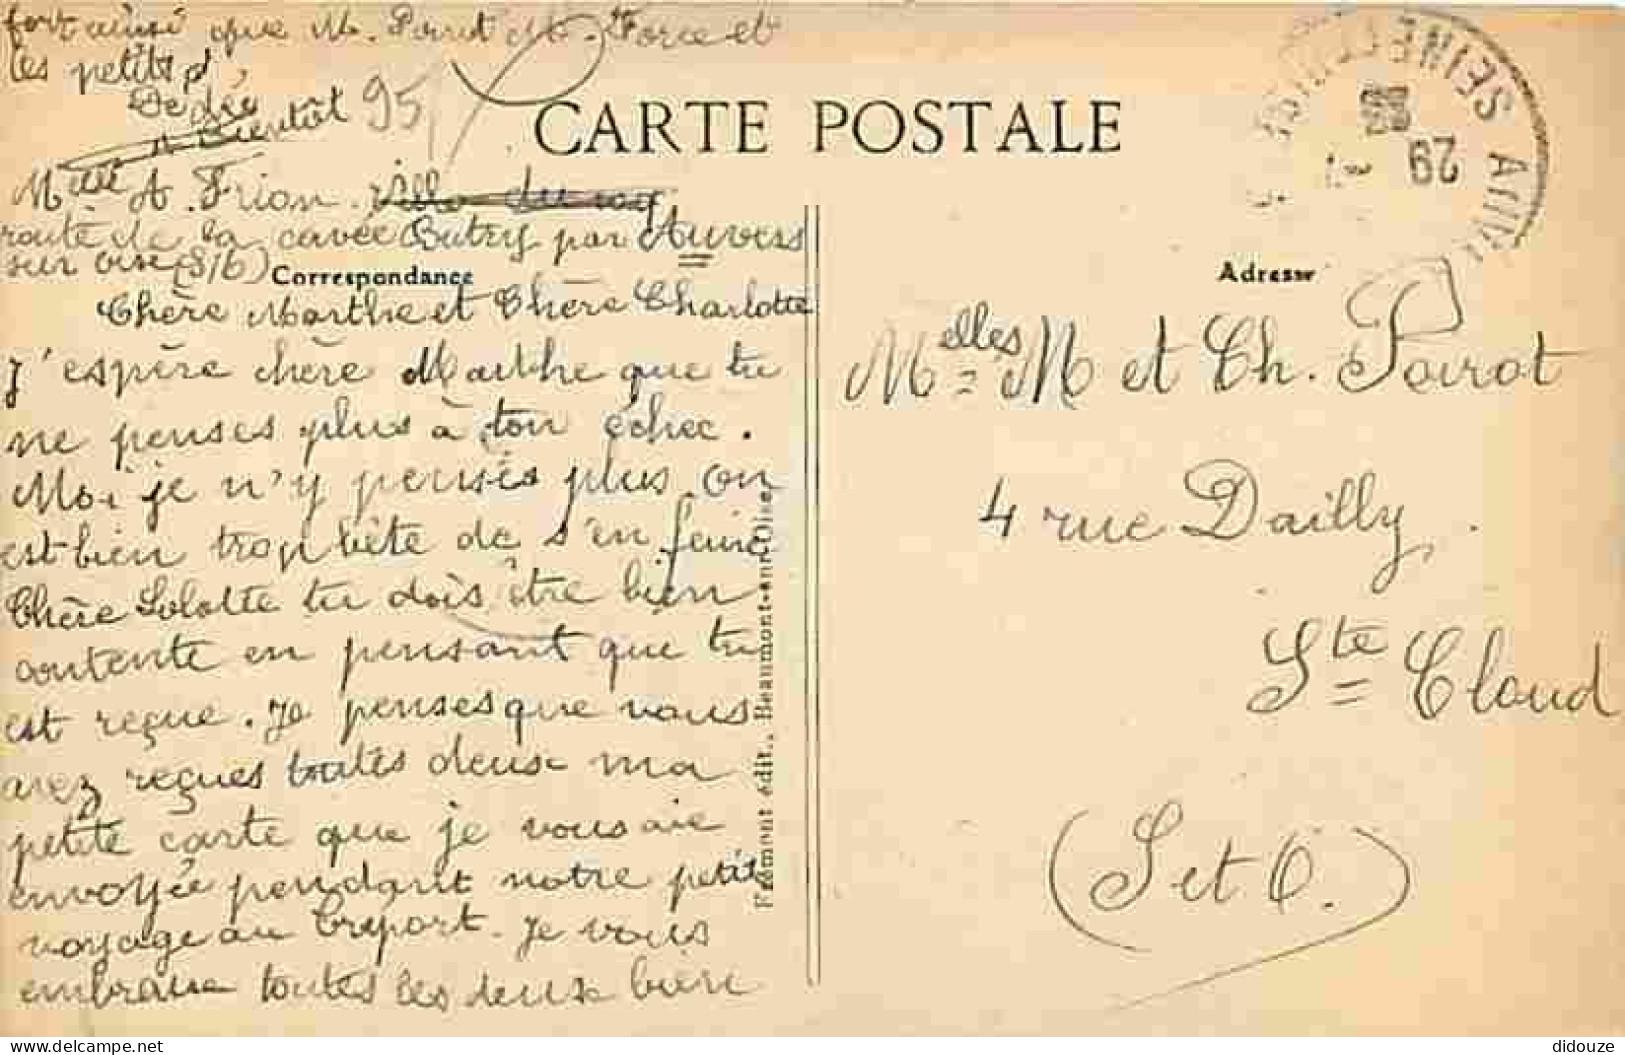 fort ainsi que M. Poirot M. Force et
les petits
Dédée
A Bientôt 95
CARTE POSTALE
SEINE
29
Mme A. Frion. villa du
route de la cavée Butry par Auvers
sur oise (S/O)
Correspondance
Adresse
Chère Marthe et Chère Charlotte
J'espère chère Marthe que tu
ne penses plus à ton échec.
Moi je n'y penses plus on
est bien trop bête de s'en faire
Chère Lolotte tu dois être bien
contente en pensant que tu
est reçue. Je penses que vous
avez reçues toutes deux ma
petite carte que je vous aie
envoyée pendant notre petit
voyage au Tréport. Je vous
embrasse toutes les deux bien
Frémont édit., Beaumont-sur-Oise
Melles M et Ch. Poirot
4 rue Dailly.
Ste Cloud
(S et O.)
delcampe.net
didouze